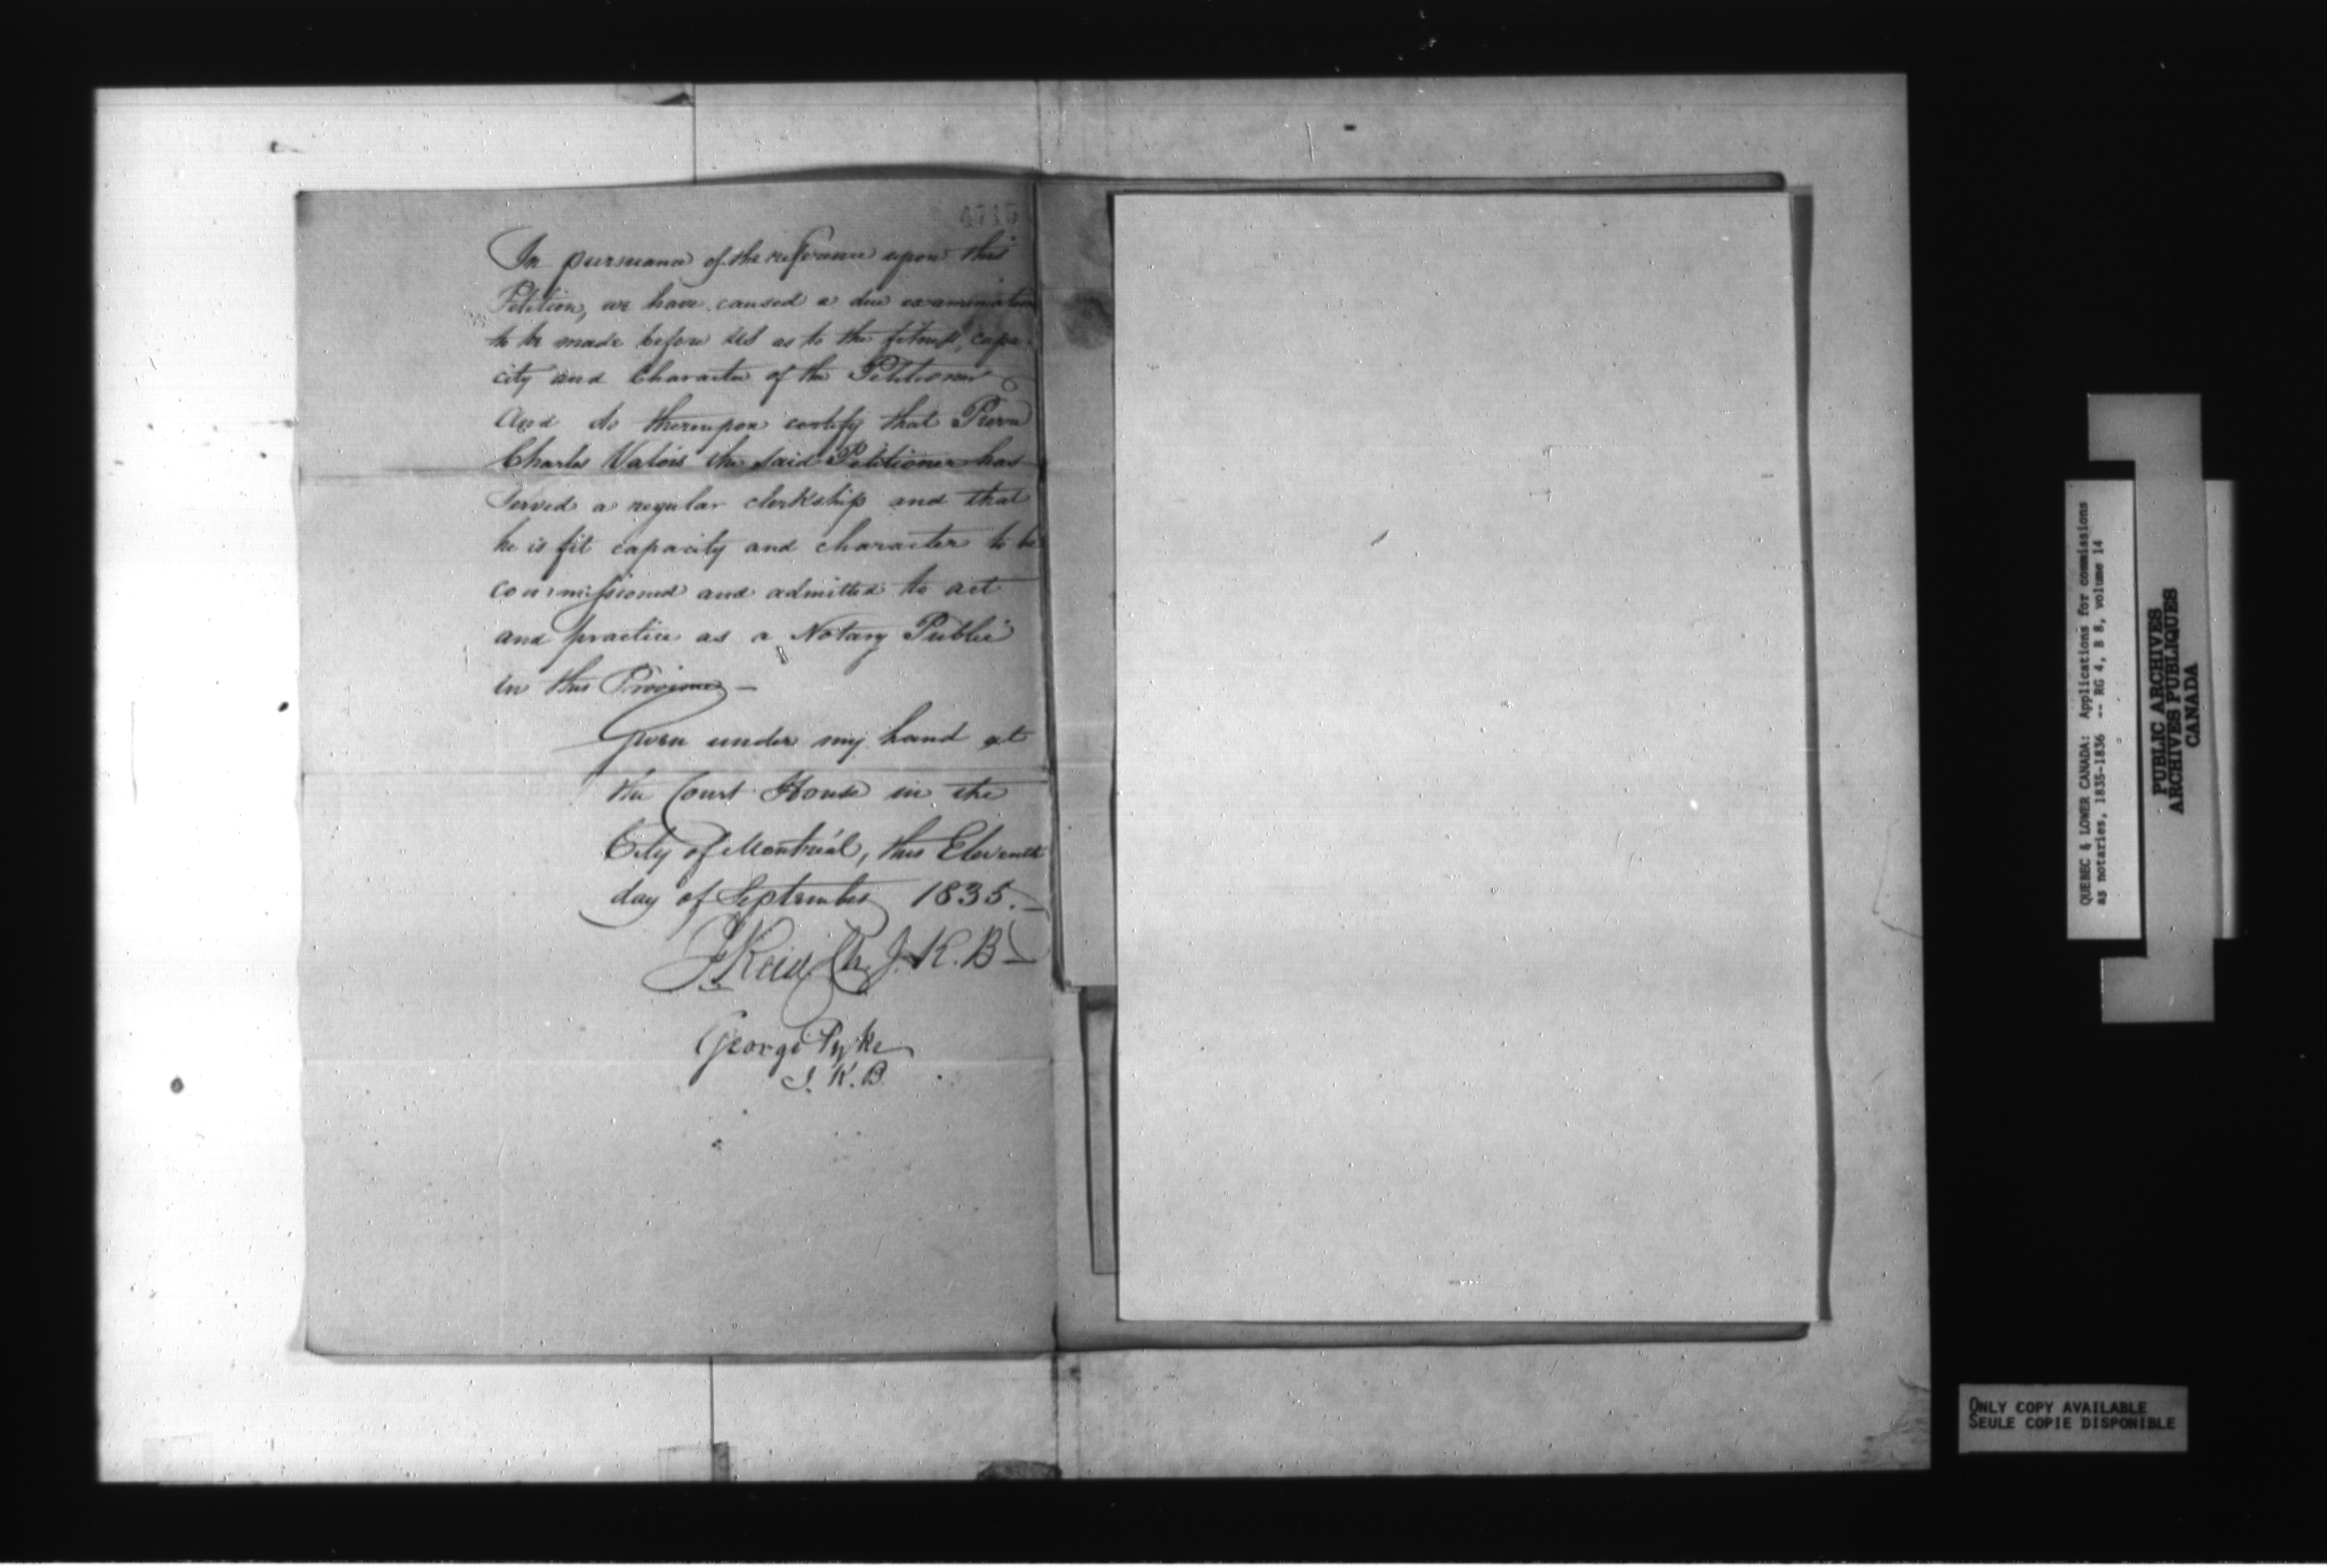 4715
In pursuance of the reference upon this
Petition, we have caused a due examination
to be made before us as to the fitness, capa-
city and Character of the Petitioner
And do thereupon certify that Pierre
Charles Valois the said Petitioner has
served a regular clerkship and that
he is fit capacity and character to be
commissioned and admitted to act
and practice as a Notary Public
in this Province —
Given under my hand at
the Court House in the
City of Montréal, this Eleventh
day of September 1835. —
J Reid Ch. J. K. B —
George Pyke
J. K. B.
QUEBEC & LOWER CANADA: Applications for commissions
as notaries, 1835-1836 -- RG 4, B 8, volume 14
PUBLIC ARCHIVES
ARCHIVES PUBLIQUES
CANADA
ONLY COPY AVAILABLE
SEULE COPIE DISPONIBLE